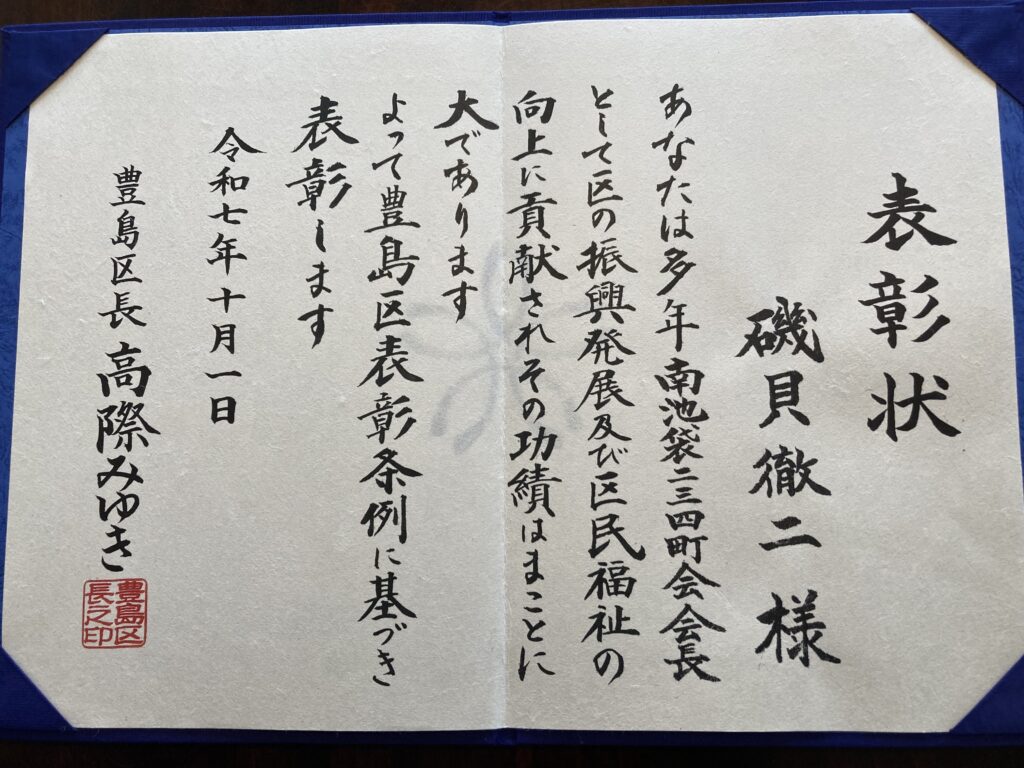 表彰状
磯貝徹二様
あなたは多年南池袋二三四町会会長
として区の振興発展及び区民福祉の
向上に貢献されその功績はまことに
大であります
よって豊島区表彰条例に基づき
表彰します
令和七年十月一日
豊島区長 高際みゆき
豊島区
長之印